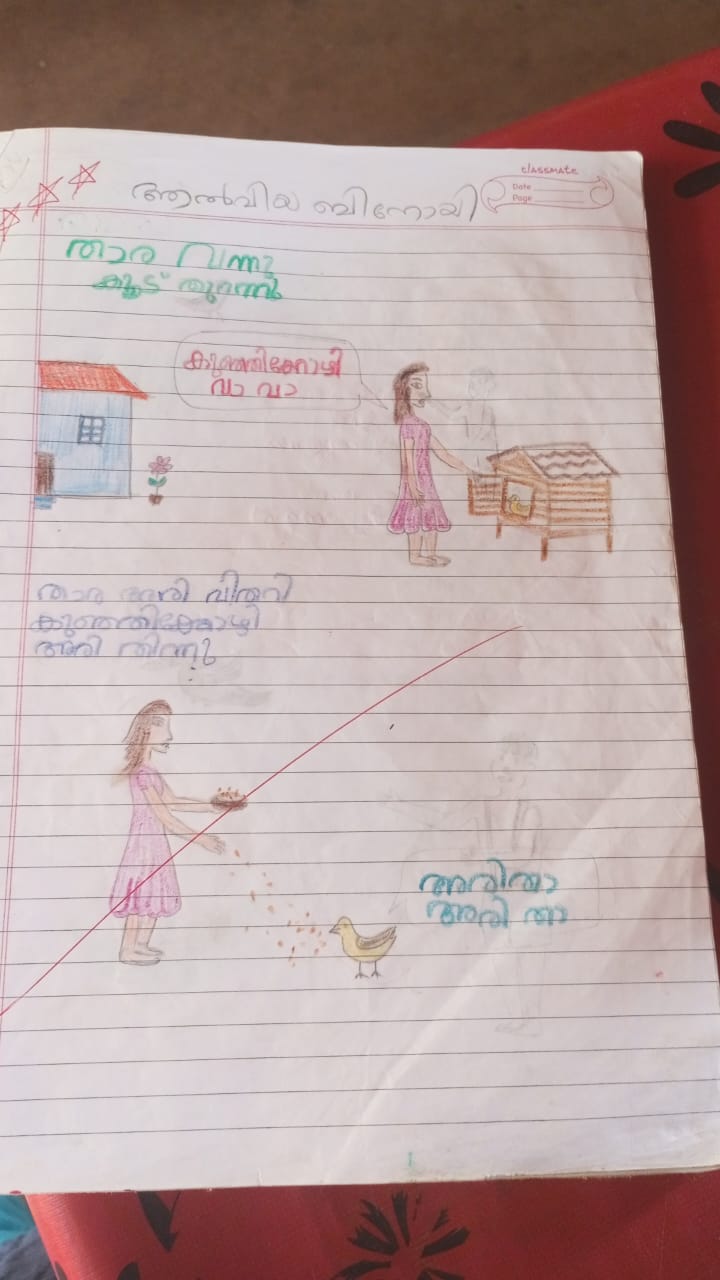 ആൽവിയ ബിനോയി
classmate
Date
Page
താര വന്നു
കൂട് തുറന്നു
കുഞ്ഞിക്കോഴി
വാ വാ
താര അരി വിതറി
കുഞ്ഞിക്കോഴി
അരി തിന്നു
അരിതാ
അരി താ